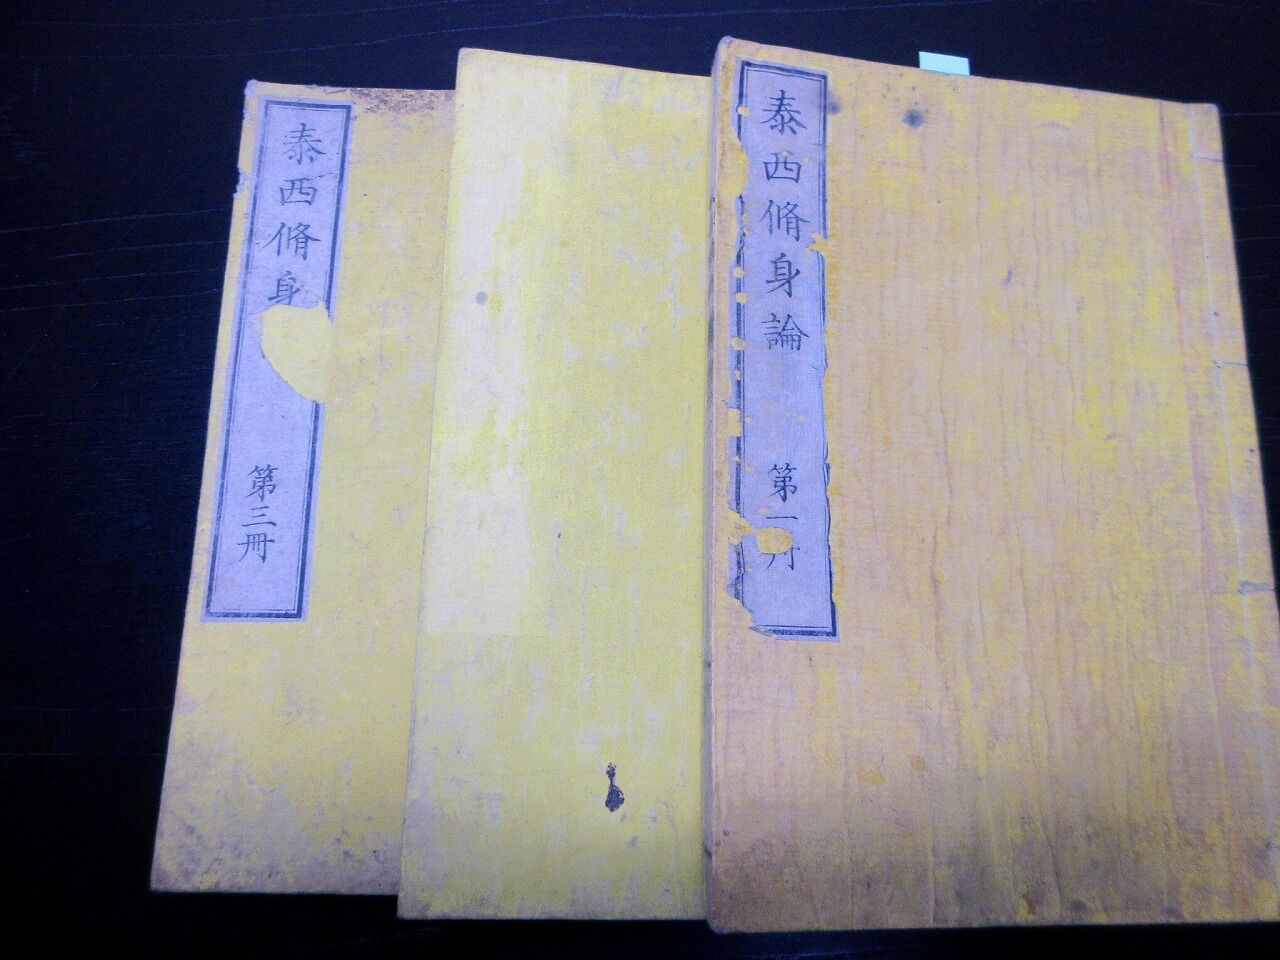 泰西脩身論
第一冊
泰西脩身
第三冊